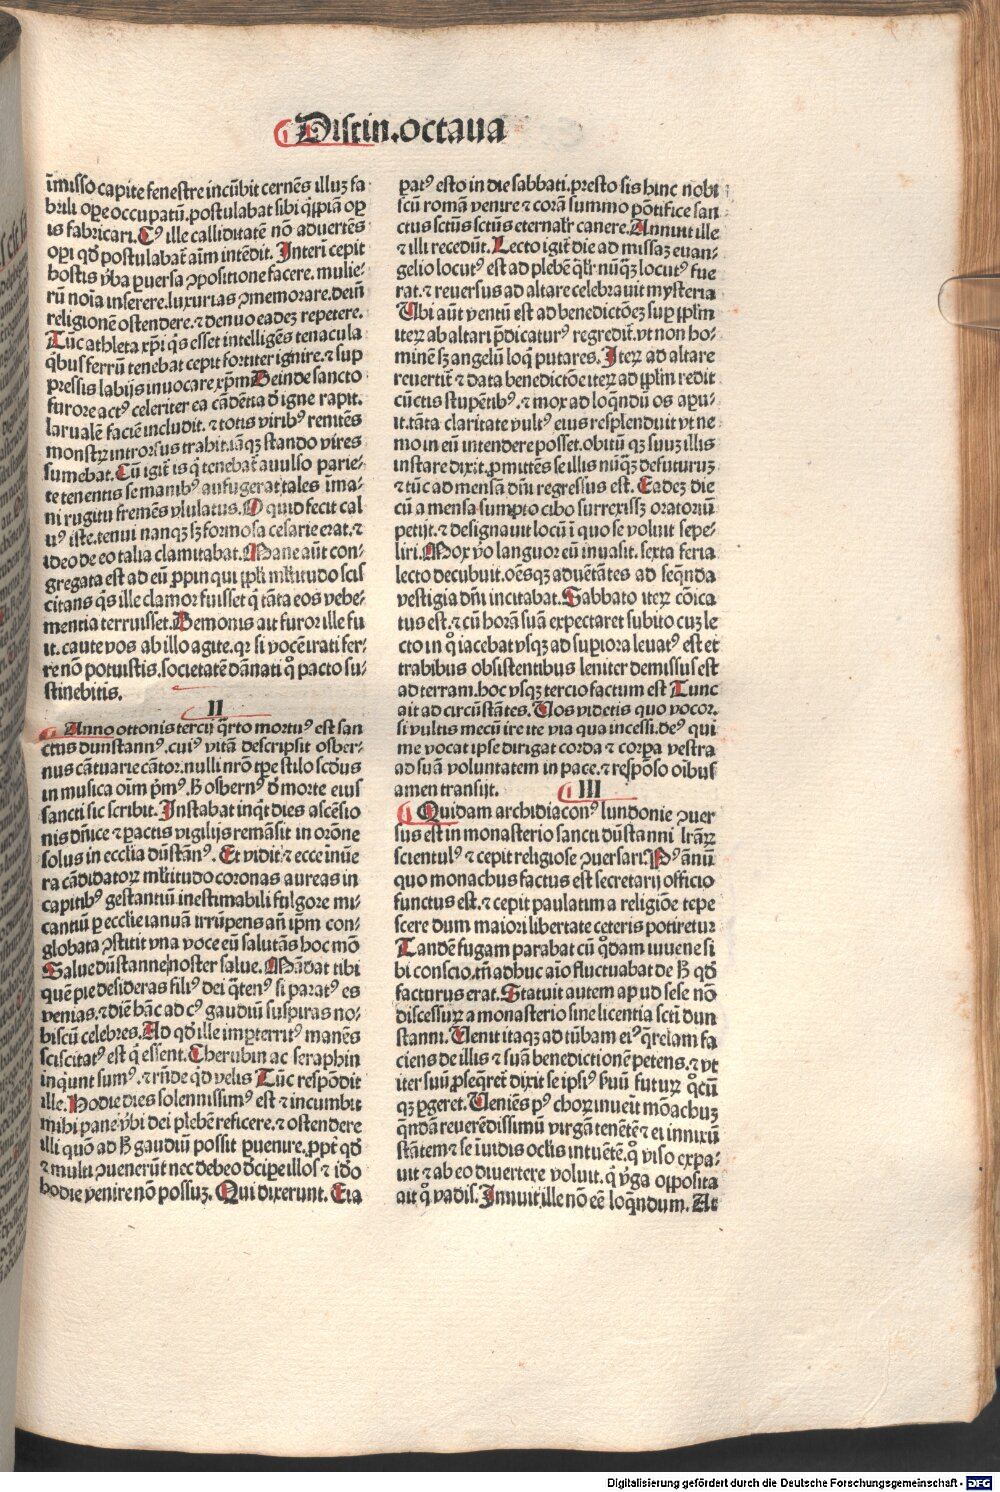 Distin.octaua
īmisso capite fenestre incūbit cernēs illuʒ fa
brili oꝑe occupatū.postulabat sibi qͥppiā oꝑ
is fabricari.Cꝰ ille calliditatē nō aduertēs
oꝑi qđ postulabat aīm intēdit. Interī cepit
hostis ꝟba ꝑuersa ꝯpositione facere. mulie⸗
rū noīa inserere.luxurias ꝯmemorare.deīn
religionē ostendere.⁊ denuo eadeʒ repetere.
Tūc athleta xp̄i qͥs esset intelligēs tenacula
qͥbus ferrū tenebat cepit fortiter ignire.⁊ sup
pressis labijs inuocare xp̄m Deinde sancto
furore actꝰ celeriter ea cādētia đ igne rapit.
larualē faciē includit. ⁊ totis viribꝰ renitēs
monstrꝝ introrsus trahit.iāqʒ stando vires
sumebat.Cū igit̄ is q̄ tenebat̄ auulso parie⸗
te tenentis se manibꝰ aufugerat tales īma⸗
ni rugitu fremēs vlulatus.O quid fecit cal
uꝰ iste.tenui nanqʒ sʒ formosa cesarie erat.⁊
ideo de eo talia clamitabat.Mane aūt con⸗
gregata est ad eū ꝓpinqui ppl̓i ml̓titudo scis
citans qͥs ille clamor fuisset q̄ tāta eos vehe⸗
mentia terruisset.Demonis ait furor ille fu
it.caute vos ab illo agite.qꝛ si vocē irati fer⸗
re nō potuistis.societatē dānati qͦ pacto su⸗
stinebitis.
II
Anno ottonis tercij qͣrto mortuꝰ est san
ctus dunstannꝰ.cuiꝰ vitā descripsit osber⸗
nus cātuarie cātor.nulli nr̄o tꝑe stilo scđus
in musica oīm pͥmꝰ.ꝧ osbernꝰ đ morte eius
sancti sic scribit. Instabat inqͥt dies ascēsio
nis dn̄ice ⁊ ꝑactis vigilijs remāsit in or̄one
solus in ecclīa dūstānꝰ. Et vidit ⁊ ecce īnūe
ra cādidatoꝝ ml̓titudo coronas aureas in
capitibꝰ gestantiū inestimabili fulgore mi⸗
cantiū ꝑ ecclīe ianuā irrūpens an̄ ip̄m con⸗
globata ꝯstitit vna voce eū salutās hoc mō
Salue dūstanne noster salue. Mādat tibi
quē pie desideras filiꝰ dei qͣtenꝰ si paratꝰ es
venias.⁊ diē hāc ad cꝰ gaudiū suspiras no⸗
biscū celebres. Ad qđ ille imꝑterritꝰ manēs
sciscitatꝰ est qͥ essent.Cherubin ac seraphin
inqͥunt sumꝰ.⁊ rn̄de qͥd velis Tūc respōdit
ille.Hodie dies solennissimꝰ est ⁊ incumbit
mihi pane ꝟbi dei plebē reficere.⁊ ostendere
illi quō ad ꝧ gaudiū possit ꝑuenire. ꝓpt̄ qđ
⁊ multi ꝯuenerūt nec debeo đciꝑe illos ⁊ iđo
hodie venire nō possuʒ. Qui dixerunt. Esa
patꝰ esto in die sabbati.presto sis hinc nobi
scū romā venire ⁊ corā summo pōtifice san
ctus sctūs sctūs eternalr̄ canere.Annuit ille
⁊ illi recedūt. Lecto igit̄ die ad missaʒ euan⸗
gelio locutꝰ est ad plebē qͣlr̄ nūqͣʒ locutꝰ fue
rat.⁊ reuersus ad altare celebrauit mysteria
Ubi aūt ventū est ad benedictōeʒ suꝑ ppl̓m
iteꝝ ab altari p̄dicaturꝰ regredit̄.vt non ho⸗
minē sʒ angelū loqͥ putares. Iteꝝ ad altare
reuertit̄ ⁊ data benedictōe iteꝝ ad ppl̓m redit
cūctis stupētibꝰ.⁊ mox ad loqͤndū os aꝑu⸗
it.tāta claritate vultꝰ eius resplenduit vt ne
mo in eū intendere posset.obitū qʒ suuʒ illis
instare dixit.ꝓmittēs se illis nūqͣʒ defuturuʒ
⁊ tūc ad mensā dn̄i regressus est. Eadeʒ die
cū a mensa sumpto cibo surrexissʒ oratoriū
petijt.⁊ designauit locū ī quo se voluit sepe⸗
liri.Mox ꝟo languor eū inuasit.sexta feria
lecto decubuit.oēsqʒ aduētātes ad seqͤnda
vestigia dn̄i incitabat.Sabbato iteꝝ cōica
tus est.⁊ cū horā suā expectaret subito cuʒ le
cto in qͦ iacebat vsqʒ ad suꝑiora leuatꝰ est et
trabibus obsistentibus leniter demissus est
ad terram.hoc vsqʒ tercio factum est Tunc
ait ad circūstātes.Vos videtis quo vocor.
si vultis mecū ire ite via qua incessi.deꝰ qui
me vocat ipse dirigat corda ⁊ corꝑa vestra
ad suā voluntatem in pace.⁊ respōso oībus
amen transijt.
III
Quidam archidiaconꝰ lundonie ꝯuer
sus est in monasterio sancti dūstanni lr̄aꝝ
scientulꝰ ⁊ cepit religiose ꝯuersari.Pꝰ ānū
quo monachus factus est secretarij officio
functus est.⁊ cepit paulatim a religiōe tepe
scere dum maiori libertate ceteris potiretur
Tandē fugam parabat cū qͦdam iuuene si
bi conscio.tn̄ adhuc aīo fluctuabat de ꝧ qđ
facturus erat.Statuit autem apud sese nō
discessuꝝ a monasterio sine licentia sctī dun
stanni.Venit itaqʒ ad tūbam eiꝰ qͤrelam fa
ciens de illis ⁊ suā benedictionē petens.⁊ vt
iter suū ꝓseqͤret̄ dixit se ipsiꝰ suū futuꝝ qͦcū
qʒ ꝑgeret.Veniēs pꝰ choꝝ inueīt mōachuʒ
qͤndā reuerēdissimū virgā tenētē ⁊ ei innixū
stātem ⁊ se īuidis ocl̓is intuētē.qͦ viso expa⸗
uit ⁊ ab eo diuertere voluit. qͥ ꝟga opposita
ait qͦ vadis.Innuit ille nō eē loqͤndum. At
Digitalisierung gefördert durch die Deutsche Forschungsgemeinschaft - DFG